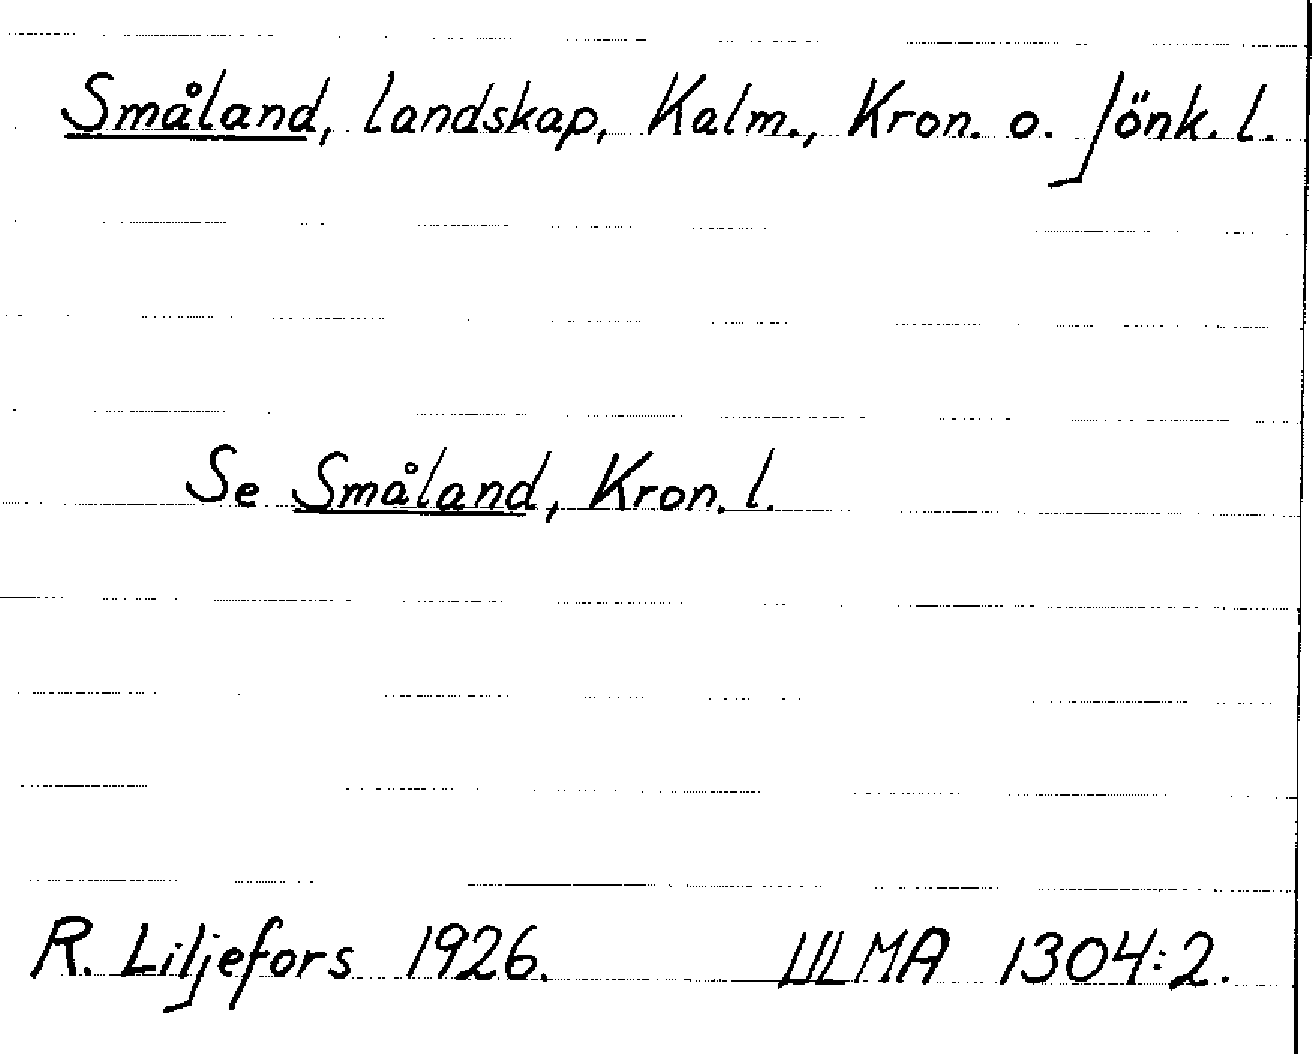 Småland, landskap, Kalm., Kron. o. Jönk. l.
Se Småland, Kron. l.
R. Liljefors 1926. ULMA 1304:2.